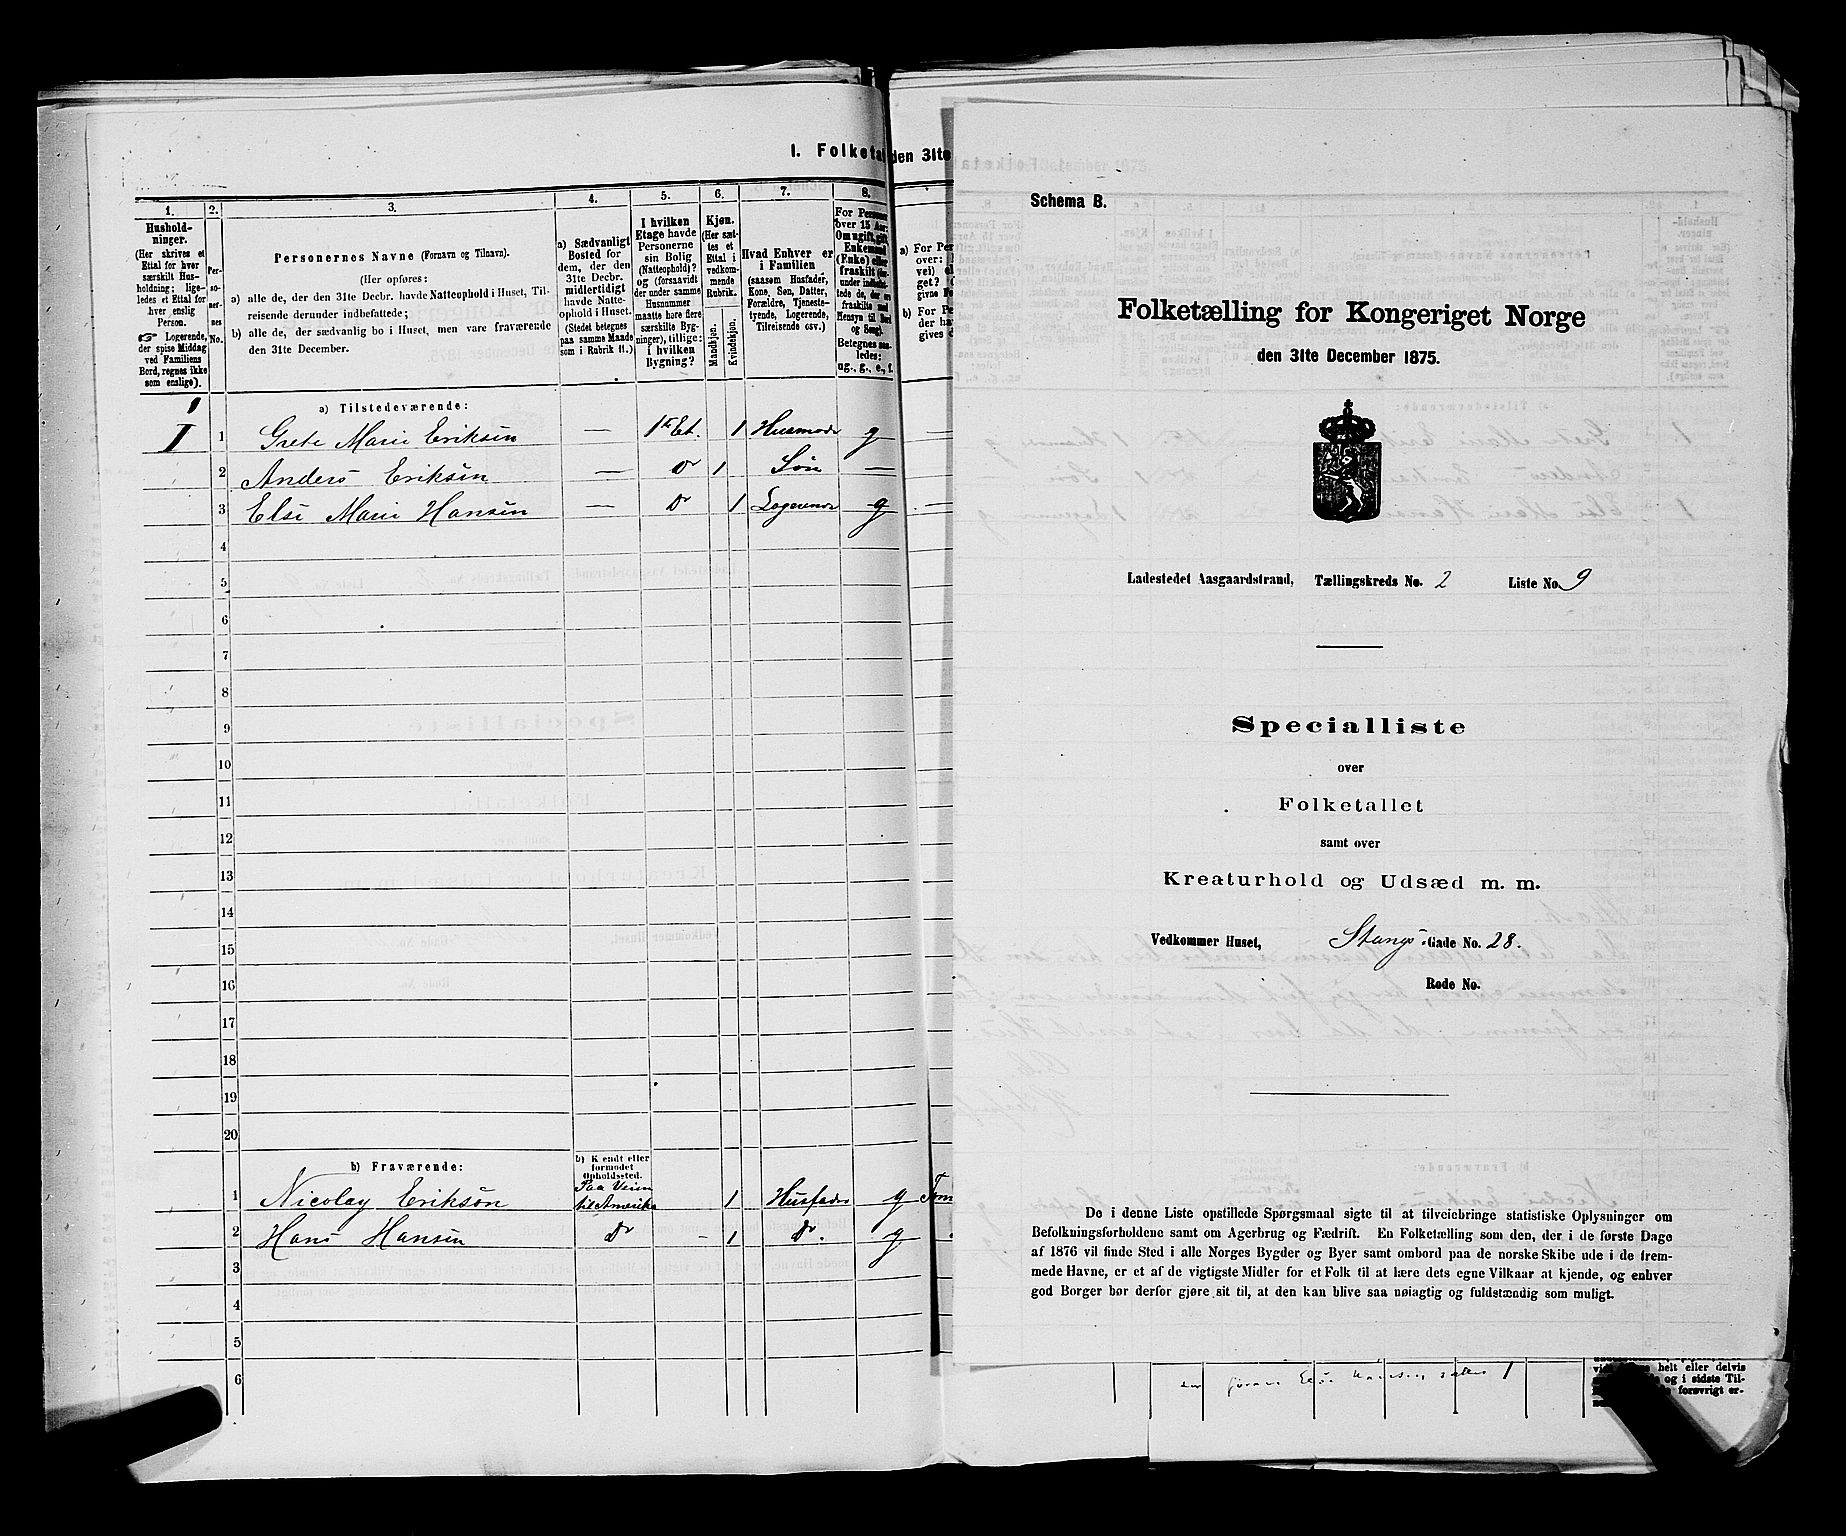 I. Folketal
den 31te
1.
2.
3.
4.
5.
6.
7.
8.
Hushold-
ninger.
(Her skrives et
Ettal for hver
særskilt Hus-
holdning; lige-
ledes et Ettal for
hver enslig
Person.
Logerende,
der spise Middag
ved Familiens
Bord, regnes ikke
som enslige).
Per-
so-
ner-
nes
No.
Personernes Navne (Fornavn og Tilnavn).
(Her opføres:
a) alle de, der den 31te Decbr. havde Natteophold i Huset, Til-
reisende derunder indbefattede;
b) alle de, der sædvanlig bo i Huset, men vare fraværende
den 31te December.
a) Sædvanligt
Bosted for
dem, der den
31te Decbr.
midlertidigt
havde Natte-
ophold i Huset.
(Stedet betegnes
paa samme Maade
som i Rubrik 11.)
I hvilken
Etage havde
Personerne
sin Bolig
(Natteophold)?
og (forsaavidt
der under samme
Husnummer
maatte høre flere
særskilte Byg-
ninger), tillige:
i hvilken
Bygning?
Kjøn.
(Her sæt-
tes et
Ettal i
vedkom-
mende
Rubrik.
Mandkjøn.
Kvindekjøn.
Hvad Enhver er
i Familien
(saasom Husfader,
Kone, Søn, Datter,
Forældre, Tjeneste-
tyende, Logerende,
Tilreisende osv.)
For Personer
over 15 Aar:
Om ugift, gift,
Enkemand
(Enke) eller
fraskilt
Betegnes saa-
ledes:
ug., g., e., f.
a) For Per
over:
vei) el
get? (
givne
b) For Pe
der ha
gives
a) Tilstedeværende:
1 1 Grete Marie Eriksen — 1te Et. 1 Husmoder g —
2 Anders Eriksen — Do 1 Søn —
3 Else Marie Hansen — Do 1 Logerende g —
4
5
6
7
8
9
10
11
12
13
14
15
16
17
18
19
20
b) Fraværende:
b) Kjendt eller
formodet
Opholdssted.
1 Nicolay Eriksen Paa Veien til Amerika 1 Husfader g Tøm
2 Hans Hansen Do - 1 Do. g
3
4
5
6
Schema B.
Folketælling for Kongeriget Norge
den 31te December 1875.
Ladestedet Aasgaardstrand, Tællingskreds No. 2 Liste No. 9
Specialliste
over
Folketallet
samt over
Kreaturhold og Udsæd m. m.
Vedkommer Huset, Stangs Gade No. 28.
Rode No.
De i denne Liste opstillede Spørgsmaal sigte til at tilveiebringe statistiske Oplysninger om
Befolkningsforholdene samt om Agerbrug og Fædrift. En Folketælling som den, der i de første Dage
af 1876 vil finde Sted i alle Norges Bygder og Byer samt ombord paa de norske Skibe ude i de frem-
mede Havne, er et af de vigtigste Midler for et Folk til at lære dets egne Vilkaar at kjende, og enhver
god Borger bør derfor gjøre sit til, at den kan blive saa nøiagtig og fuldstændig som muligt.
helt eller delvis
og i sidste Til-
forøvrigt er-